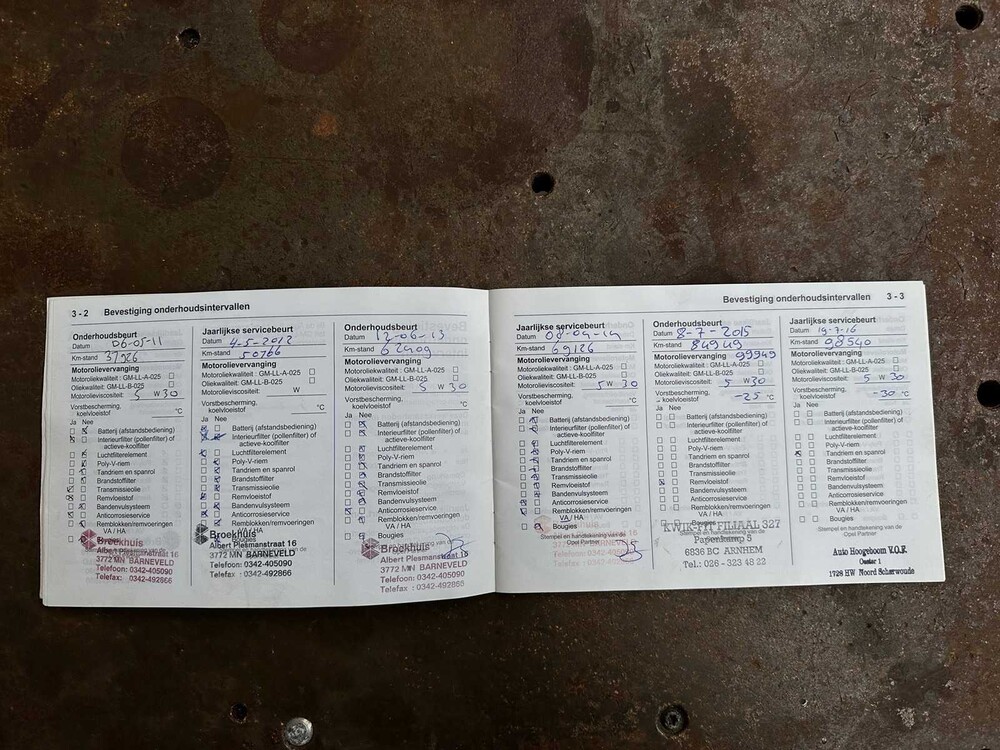 3 - 2 Bevestiging onderhoudsintervallen
Onderhoudsbeurt
Datum 06-05-11
Km-stand 37926
Motorolievervanging
Motoroliekwaliteit : GM-LL-A-025
Oliekwaliteit: GM-LL-B-025
Motorolieviscositeit: 5 W 30
Vorstbescherming,
koelvloeistof °C
Ja Nee
Batterij (afstandsbediening)
Interieurfilter (pollenfilter) of
actieve-koolfilter
Luchtfilterelement
Poly-V-riem
Tandriem en spanrol
Brandstoffilter
Transmissieolie
Remvloeistof
Bandenvulsysteem
Anticorrosieservice
Remblokken/remvoeringen
VA / HA
Broekhuis
Albert Plesmanstraat 16
3772 MN BARNEVELD
Telefoon: 0342-405090
Telefax: 0342-492866
Jaarlijkse servicebeurt
Datum 4-5-2012
Km-stand 50766
Motorolievervanging
Motoroliekwaliteit: GM-LL-A-025
Oliekwaliteit: GM-LL-B-025
Motorolieviscositeit: W
Vorstbescherming,
koelvloeistof °C
Ja Nee
Batterij (afstandsbediening)
Interieurfilter (pollenfilter) of
actieve-koolfilter
Luchtfilterelement
Poly-V-riem
Tandriem en spanrol
Brandstoffilter
Transmissieolie
Remvloeistof
Bandenvulsysteem
Anticorrosieservice
Remblokken/remvoeringen
VA / HA
Broekhuis
Albert Plesmanstraat 16
3772 MN BARNEVELD
Telefoon: 0342-405090
Telefax: 0342-492866
Onderhoudsbeurt
Datum 12-06-13
Km-stand 62409
Motorolievervanging
Motoroliekwaliteit: GM-LL-A-025
Oliekwaliteit: GM-LL-B-025
Motorolieviscositeit: 5 W 30
Vorstbescherming,
koelvloeistof °C
Ja Nee
Batterij (afstandsbediening)
Interieurfilter (pollenfilter) of
actieve-koolfilter
Luchtfilterelement
Poly-V-riem
Tandriem en spanrol
Brandstoffilter
Transmissieolie
Remvloeistof
Bandenvulsysteem
Anticorrosieservice
Remblokken/remvoeringen
VA / HA
Bougies
Broekhuis
Albert Plesmanstraat 16
3772 MN BARNEVELD
Telefoon: 0342-405090
Telefax : 0342-492866
Bevestiging onderhoudsintervallen 3 - 3
Jaarlijkse servicebeurt
Datum 08-04-14
Km-stand 69126
Motorolievervanging
Motoroliekwaliteit: GM-LL-A-025
Oliekwaliteit: GM-LL-B-025
Motorolieviscositeit: 5 W 30
Vorstbescherming,
koelvloeistof °C
Ja Nee
Batterij (afstandsbediening)
Interieurfilter (pollenfilter) of
actieve-koolfilter
Luchtfilterelement
Poly-V-riem
Tandriem en spanrol
Brandstoffilter
Transmissieolie
Remvloeistof
Bandenvulsysteem
Anticorrosieservice
Remblokken/remvoeringen
VA / HA
Bougies
Stempel en handtekening van de
Opel Partner
Onderhoudsbeurt
Datum 8-7-2015
Km-stand 84949
Motorolievervanging 99949
Motoroliekwaliteit: GM-LL-A-025
Oliekwaliteit: GM-LL-B-025
Motorolieviscositeit: 5 W 30
Vorstbescherming,
koelvloeistof -25 °C
Ja Nee
Batterij (afstandsbediening)
Interieurfilter (pollenfilter) of
actieve-koolfilter
Luchtfilterelement
Poly-V-riem
Tandriem en spanrol
Brandstoffilter
Transmissieolie
Remvloeistof
Bandenvulsysteem
Anticorrosieservice
Remblokken/remvoeringen
VA / HA
Bougies
KWIK-FIT FILIAAL 327
Papendamp 5
6836 BC ARNHEM
Tel.: 026 - 323 48 22
Jaarlijkse servicebeurt
Datum 19-7-16
Km-stand 98540
Motorolievervanging
Motoroliekwaliteit: GM-LL-A-025
Oliekwaliteit: GM-LL-B-025
Motorolieviscositeit: 5 W 30
Vorstbescherming,
koelvloeistof -30 °C
Ja Nee
Batterij (afstandsbediening)
Interieurfilter (pollenfilter) of
actieve-koolfilter
Luchtfilterelement
Poly-V-riem
Tandriem en spanrol
Brandstoffilter
Transmissieolie
Remvloeistof
Bandenvulsysteem
Anticorrosieservice
Remblokken/remvoeringen
VA / HA
Bougies
Stempel en handtekening van de
Opel Partner
Auto Hoogeboom V.O.F.
Oostar 1
1728 HW Noord Scharwoude